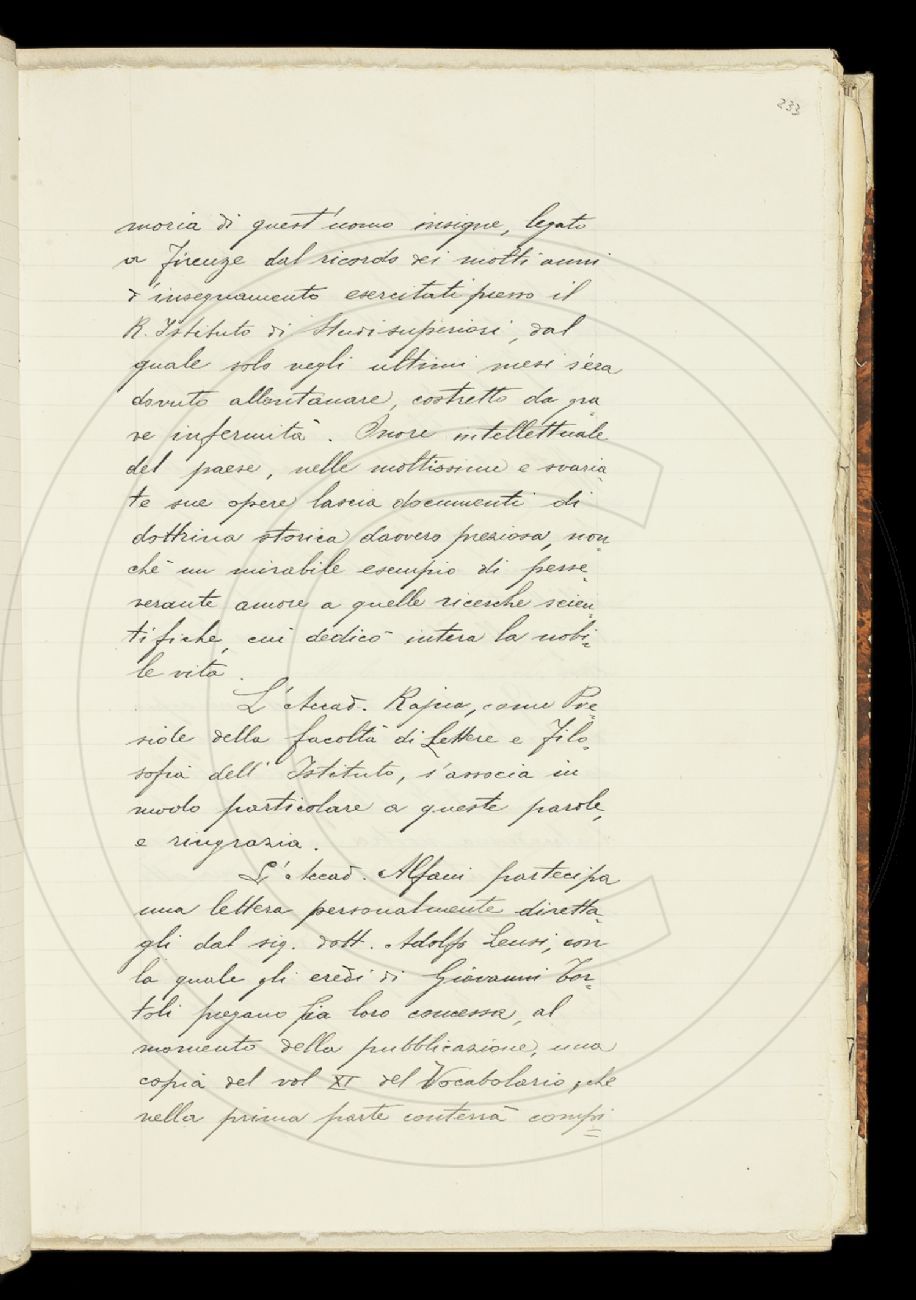 233
moria di quest'uomo insigne, legato
a Firenze dal ricordo dei molti anni
d'insegnamento esercitati presso il
R. Istituto di Studi superiori, dal
quale solo negli ultimi mesi s'era
dovuto allontanare, costretto da gra
ve infermità. Onore intellettuale
del paese, nelle moltissime e svaria-
te sue opere lascia documenti di
dottrina storica davvero preziosa, non
chè un mirabile esempio di perse-
verante amore a quelle ricerche scien-
tifiche, cui dedicò intera la nobi=
le vita.
L'Accad. Rajna, come Pre-
side della facoltà di Lettere e Filo-
sofia dell'Istituto, s'associa in
modo particolare a queste parole,
e ringrazia.
L'Accad. Alfani partecipa
una lettera personalmente diretta-
gli dal sig. dott. Adolfo Lensi, con
la quale gli eredi di Giovanni Tor=
toli pregano sia loro concessa, al
momento della pubblicazione, una
copia del vol XI del Vocabolario, che
nella prima parte conterrà compi
=